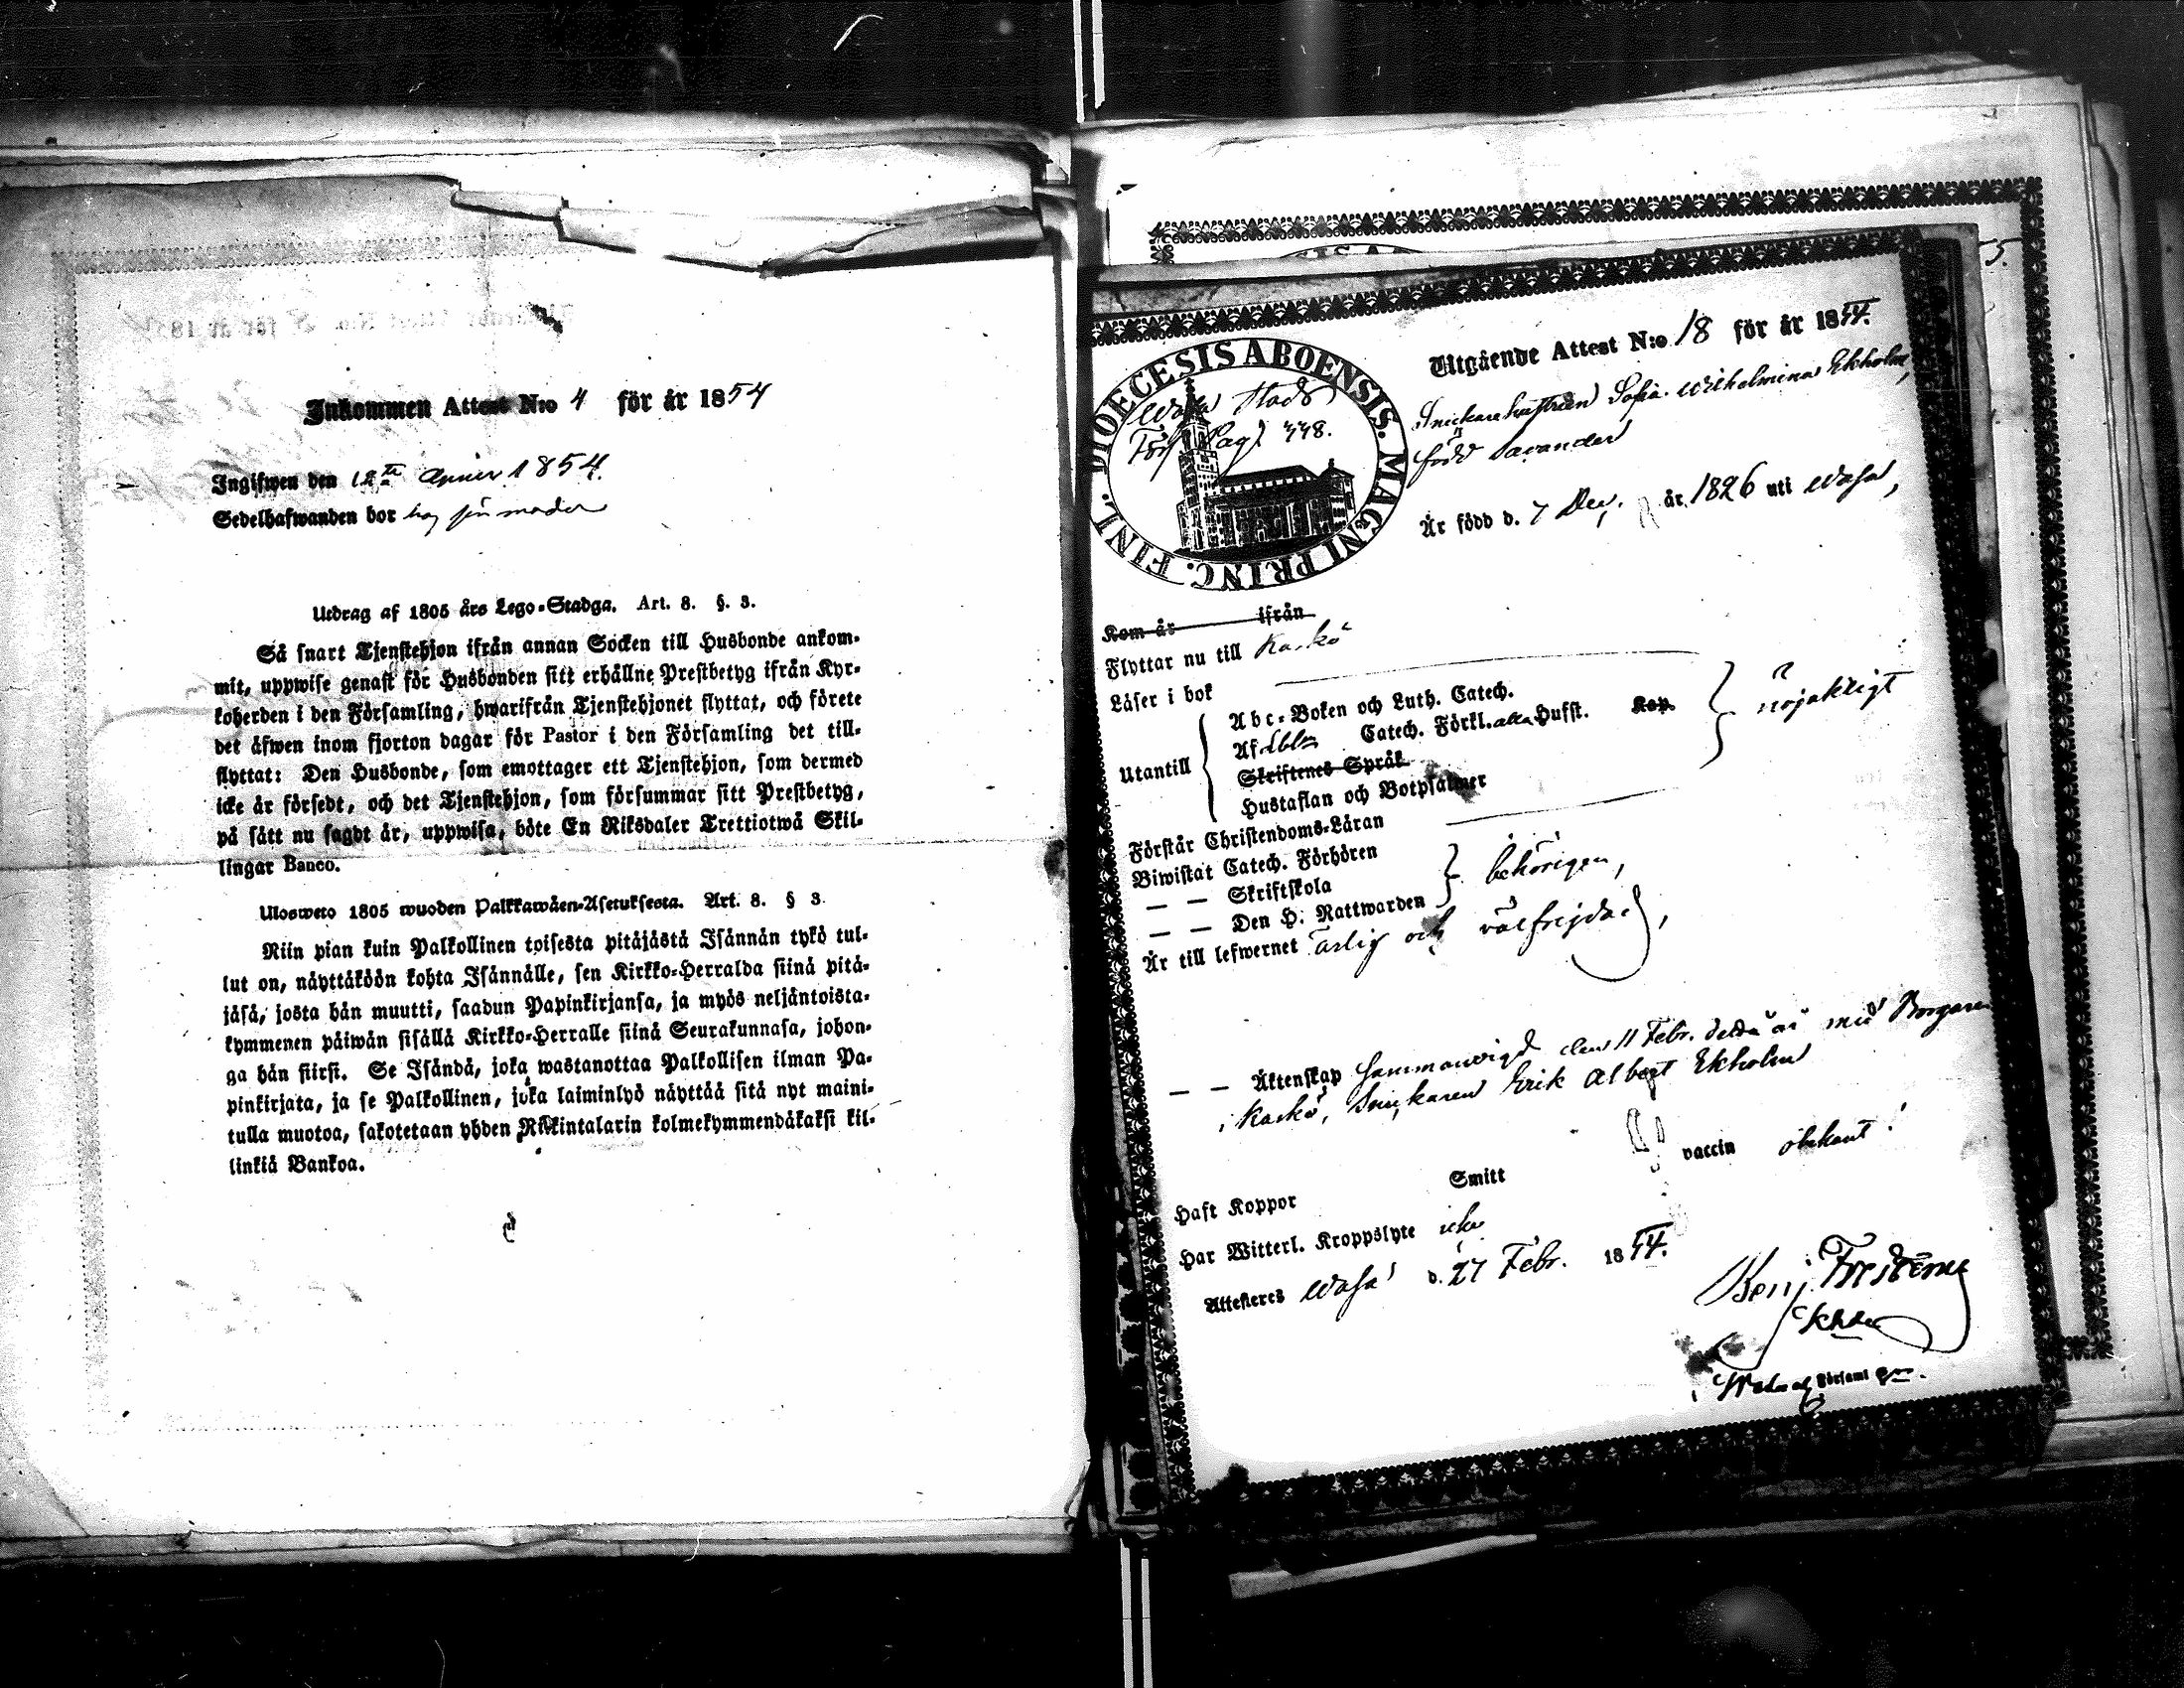 Inkommen Attest N:o 4 för år 1854
Ingifwen den 12te 1854.
Sedelhafwanden bor hos sin moder
Utdrag af 1805 års Lego-Stadga. Art. 8. §. 3.
Så snart Tjenstehjon ifrån annan Socken till Husbonde ankom-
mit, uppwise genast för Husbonden sitt erhållne Prestbetyg ifrån Kyr-
koherden i den Församling, hwarifrån Tjenstehjonet flyttat, och förete
det äfwen inom fjorton dagar för Pastor i den Församling det till-
flyttat: Den Husbonde, som emottager ett Tjenstehjon, som dermed
icke är försedt, och det Tjenstehjon, som försummar sitt Prestbetyg,
på sätt nu sagdt är, uppwisa, böte En Riksdaler Trettiotwå Skil-
lingar Banco.
Ulosweto 1805 wuoden Palkkawäen-Asetuksesta. Art. 8. § 3.
Niin pian kuin Palkollinen toisesta pitäjästä Isännän tykö tul-
lut on, näyttäköön kohta Isännälle, sen Kirkko-Herralda siinä pitä-
jäsä, josta hän muutti, saadun Papinkirjansa, ja myös neljäntoista-
kymmenen päiwän sisällä Kirkko-Herralle siinä Seurakunnasa, johon-
ga hän siirsi. Se Isändä, joka wastanottaa Palkollisen ilman Pa-
pinkirjata, ja se Palkollinen, joka laiminlyö näyttää sitä nyt maini-
tulla muotoa, sakotetaan yhden Riikintalarin kolmekymmendäkaksi kil-
linkiä Bankoa.
DIOECESIS ABOENSIS. MAGNI PRINC. FINL.
Wasa Stads
Förs. Pag. 448.
Utgående Attest N:o 18 för år 1854.
Snickarehustrun Sofia Wilhelmina Ekholm,
född Savander
Är född d. 7 Dec. år 1826 uti Wasa,
Kom år ifrån
Flyttar nu till Kaskö
Läser i bok
Utantill
Abc-Boken och Luth. Catech.
Af Catech. Förkl. alla Hufst. Kap.
Skriftenes Språk
Hustaflan och Botpsalmer
nöjaktigt
Förstår Christendoms-Läran
Biwistat Catech. Förhören
— — Skriftskola
— — Den H. Nattwarden
behörigen,
Är till lefwernet ärlig och välfrejdad,
— — Äktenskap sammanvigd den 11 Febr. detta år med Borgaren
i Kaskö, Snickaren Erik Albert Ekholm
Haft Koppor Smitt vaccin obekant!
Har Witterl. Kroppslyte icke
Attesteres Wasa d. 27 Febr. 1854.
Benj.
Församl.